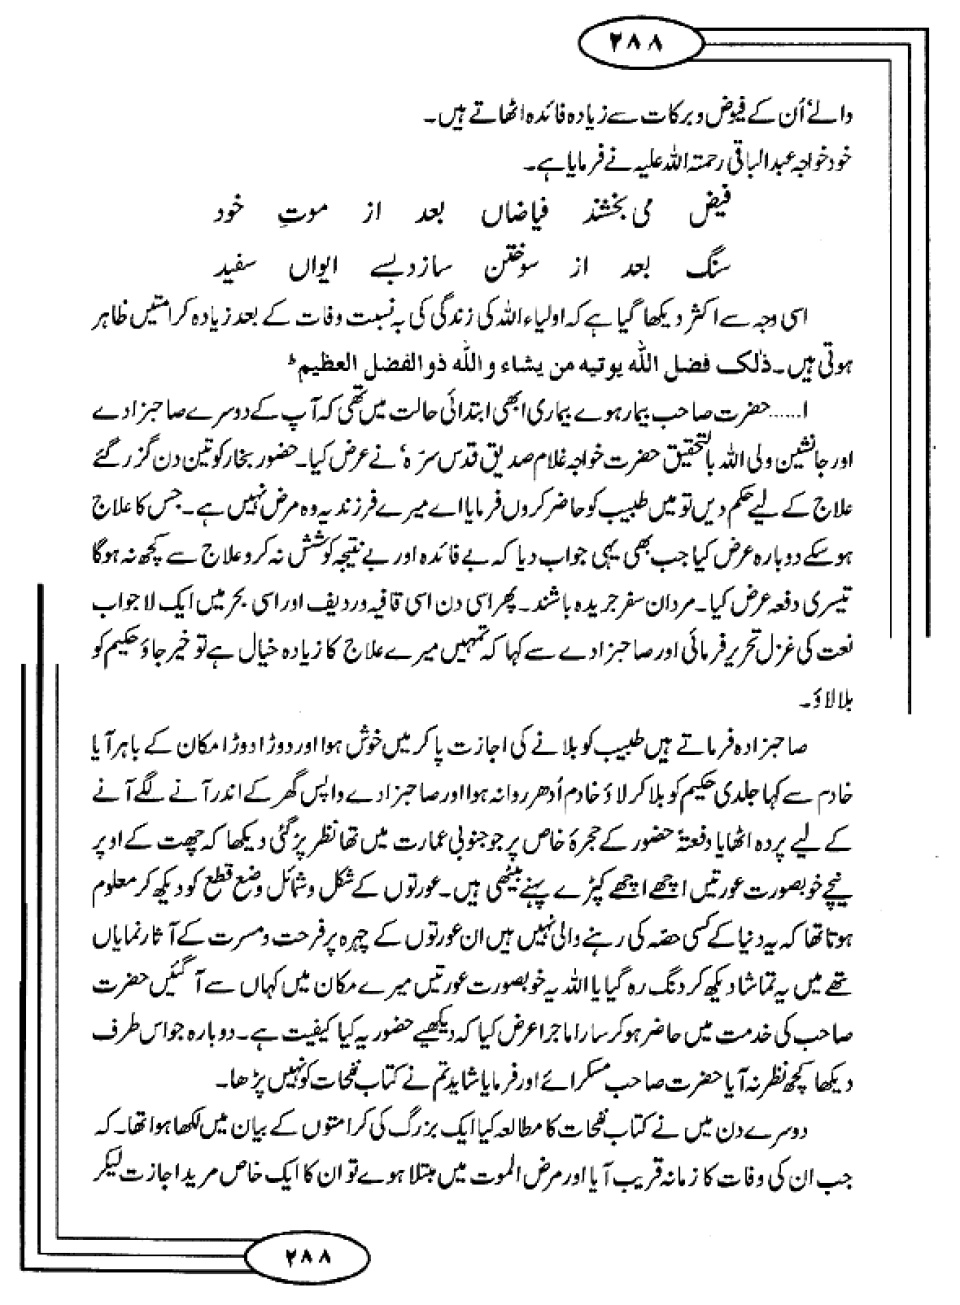 ۲۸۸
والے اُن کے فیوض و برکات سے زیادہ فائدہ اٹھاتے ہیں۔
خود خواجہ عبدالباقی رحمتہ اللہ علیہ نے فرمایا ہے۔
فیض می بخشند فیاضاں بعد از موتِ خود
سنگ بعد از سوختن سازد بسے ایواں سفید
اسی وجہ سے اکثر دیکھا گیا ہے کہ اولیاء اللہ کی زندگی کی بہ نسبت وفات کے بعد زیادہ کرامتیں ظاہر
ہوتی ہیں۔ ذٰلک فضل اللہ یوتیہ من یشاء و اللہ ذوالفضل العظیم ط
ا......حضرت صاحب بیمار ہوے بیماری ابھی ابتدائی حالت میں تھی کہ آپ کے دوسرے صاحبزادے
اور جانشین ولی اللہ بالتحقیق حضرت خواجہ غلام صدیق قدس سرہ' نے عرض کیا۔ حضور بخار کو تین دن گزر گئے
علاج کے لیے حکم دیں تو میں طبیب کو حاضر کروں فرمایا اے میرے فرزند یہ وہ مرض نہیں ہے۔ جس کا علاج
ہو سکے دوبارہ عرض کیا جب بھی یہی جواب دیا کہ بے فائدہ اور بے نتیجہ کوشش نہ کرو علاج سے کچھ نہ ہوگا
تیسری دفعہ عرض کیا۔ مردان سفر جریدہ باشند۔ پھر اسی دن اسی قافیہ وردیف اور اسی بحر میں ایک لاجواب
نعت کی غزل تحریر فرمائی اور صاحبزادے سے کہا کہ تمہیں میرے علاج کا زیادہ خیال ہے تو خیر جاؤ حکیم کو
بلا لاؤ۔
صاحبزادہ فرماتے ہیں طبیب کو بلانے کی اجازت پاکر میں خوش ہوا اور دوڑا دوڑا مکان کے باہر آیا
خادم سے کہا جلدی حکیم کو بلا کر لاؤ خادم اُدھر روانہ ہوا اور صاحبزادے واپس گھر کے اندر آنے لگے آنے
کے لیے پردہ اٹھایا دفعتۂ حضور کے حجرۂ خاص پر جو جنوبی عمارت میں تھا نظر پڑ گئی دیکھا کہ چھت کے اوپر
نیچے خوبصورت عورتیں اچھے اچھے کپڑے پہنے بیٹھی ہیں۔ عورتوں کے شکل و شمائل وضع قطع کو دیکھ کر معلوم
ہوتا تھا کہ یہ دنیا کے کسی حصّہ کی رہنے والی نہیں ہیں ان عورتوں کے چہرہ پر فرحت و مسرت کے آثار نمایاں
تھے میں یہ تماشا دیکھ کر دنگ رہ گیا یا اللہ یہ خوبصورت عورتیں میرے مکان میں کہاں سے آگئیں حضرت
صاحب کی خدمت میں حاضر ہوکر سارا ماجرا عرض کیا کہ دیکھیے حضور یہ کیا کیفیت ہے۔ دوبارہ جو اس طرف
دیکھا کچھ نظر نہ آیا حضرت صاحب مسکرائے اور فرمایا شاید تم نے کتاب نفحات کو نہیں پڑھا۔
دوسرے دن میں نے کتاب نفحات کا مطالعہ کیا ایک بزرگ کی کرامتوں کے بیان میں لکھا ہوا تھا۔ کہ
جب ان کی وفات کا زمانہ قریب آیا اور مرض الموت میں مبتلا ہوے تو ان کا ایک خاص مرید اجازت لیکر
۲۸۸